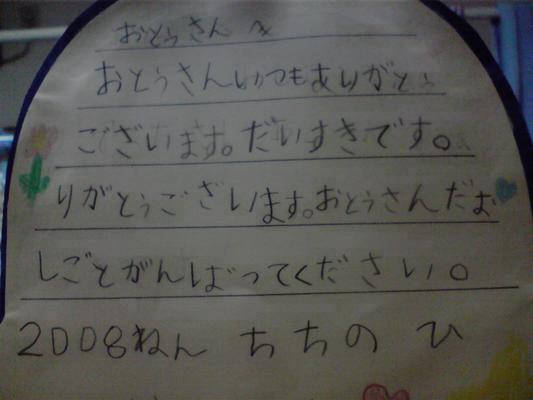 おとぅさん へ
おとぅさんいつもありがとぅ
ございます。だいすきです。
りがとぅございます。おとぅさんだお
しごとがんばってください。
2008ねん ちちの ひ